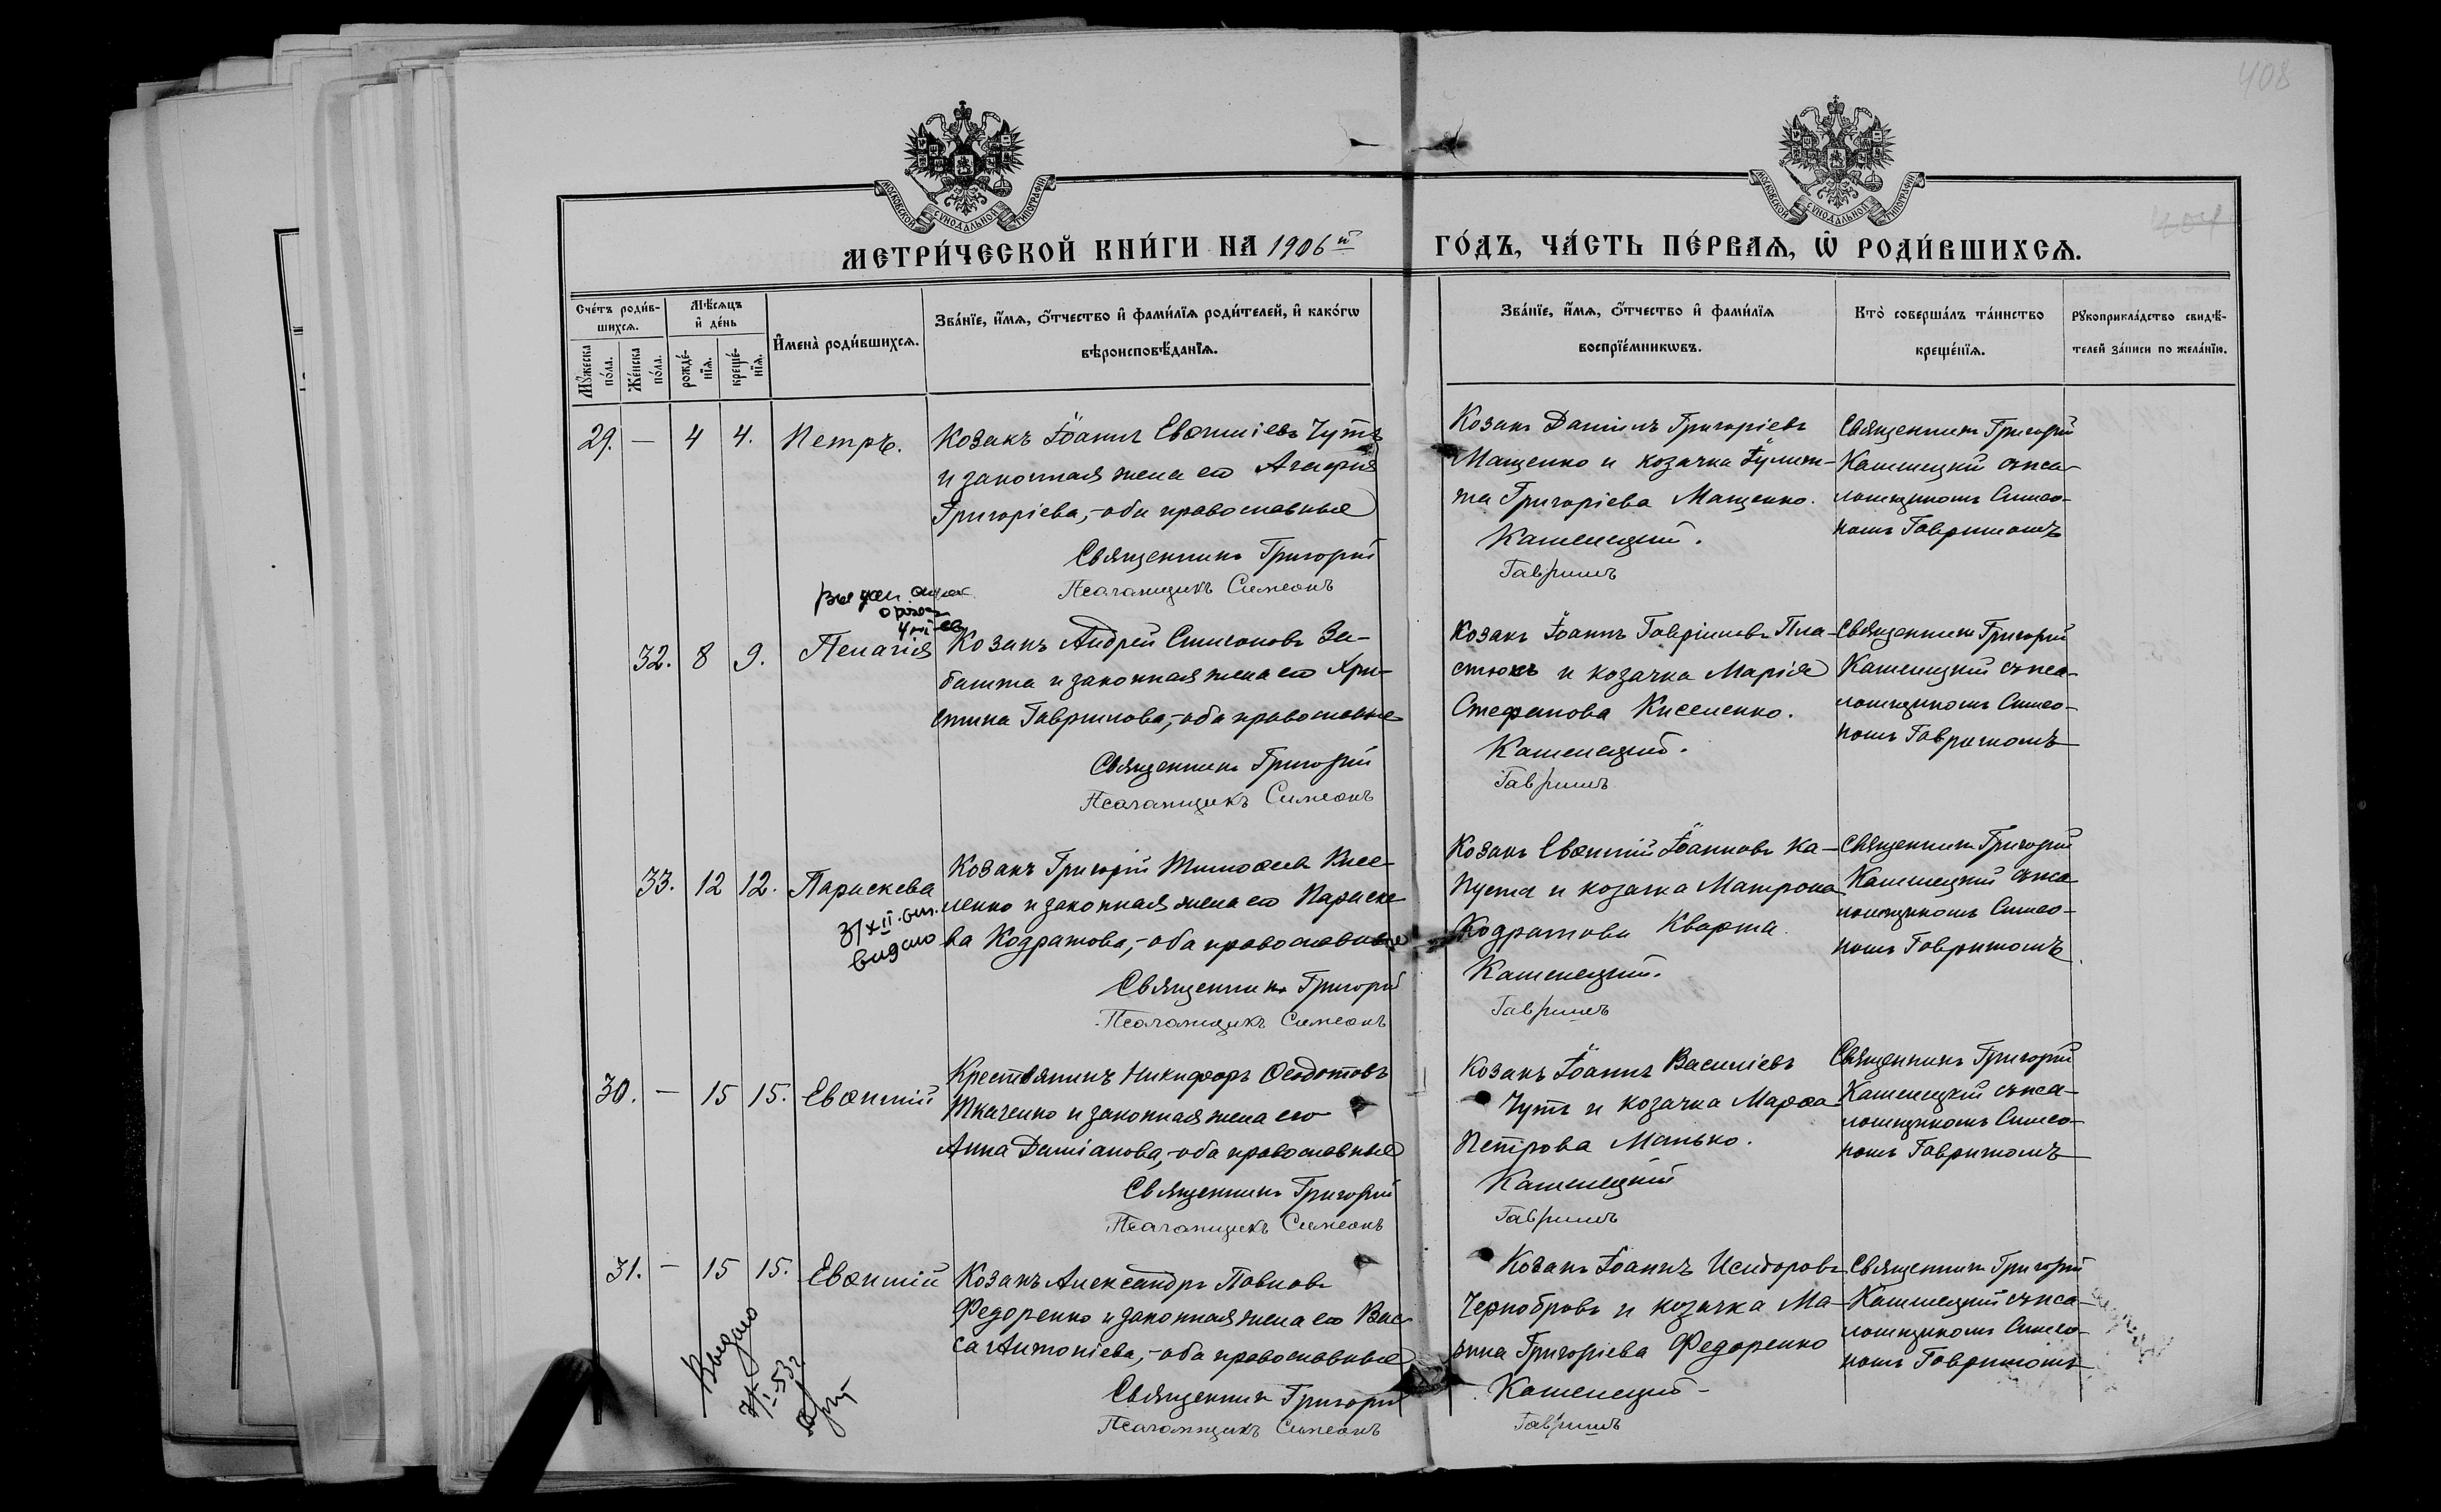 408
404
МОСКОВСКОЙ СУНОДАЛЬНОЙ ТИПОГРАФІИ
МОСКОВСКОЙ СУНОДАЛЬНОЙ ТИПОГРАФІИ
МЕТРИ́ЧЕСКОЙ КНИ́ГИ НА 1906й ГО́ДЪ, ЧА́СТЬ ПЕ́РВАѦ, Ѡ РОДИ́ВШИХСѦ.
Сче́тъ роди́в-
шихсѧ.
Мѣ́сѧцъ
и де́нь
Мꙋ́жеска по́ла.
Же́нска по́ла.
рожде́-
нїѧ.
креще́-
нїѧ.
И҆мена̀ роди́вшихсѧ.
Зва́нїе, и҆́мѧ, ѻ҆́тчество и҆ фами́лїѧ роди́телей, и҆ како́гѡ
вѣроисповѣ́данїѧ.
Зва́нїе, и҆́мѧ, ѻ҆́тчество и҆ фами́лїѧ
воспрїе́мникѡвъ.
Кто̀ соверша́лъ та́инство
креще́нїѧ.
Рꙋкоприкла́дство свидѣ́-
телей за́писи по жела́нїю.
29. — 4 4. Петръ.
Козакъ Іоаннъ Евѳиміевъ Чутъ
и законная жена его Агафія
Григоріева,-оба православные
Священникъ Григорій
Псаломщикъ Симеонъ
Козакъ Даніилъ Григоріевъ
Мащенко и козачка Іулит-
та Григоріева Мащенко.
Каменецкий.
Гавришъ
Священникъ Григорій
Каменецкий съ пса-
ломщикомъ Симео-
номъ Гавришомъ
32. 8 9. Пелагія
Козакъ Андрей Симеоновъ За-
башта и законная жена его Хри-
стина Гаврилова,-оба православные
Священникъ Григорій
Псаломщикъ Симеонъ
Козакъ Іоаннъ Гавріиловъ Пла-
стюкъ и козачка Марія
Стефанова Киселенко.
Каменецкий.
Гавришъ
Священникъ Григорій
Каменецкий съ пса-
ломщикомъ Симео-
номъ Гавришомъ
33. 12 12. Параскева
31 XII
видано
Козакъ Григорій Тимоѳеев Кисе-
ленко и законная жена его Параске-
ва Кодратова,-оба православные
Священникъ Григорій
Псаломщикъ Симеонъ
Козакъ Евѳимій Іоанновъ Ка-
пуста и козачка Матрона
Кодратова Кварта.
Каменецкий.
Гавришъ
Священникъ Григорій
Каменецкий съ пса-
ломщикомъ Симео-
номъ Гавришомъ.
30. — 15 15. Евѳимій
Крестьянинъ Никифоръ Ѳеодотовъ
Ткаченко и законная жена его
Анна Даміанова,-оба православные
Священникъ Григорій
Псаломщикъ Симеонъ
Козакъ Іоаннъ Василіевъ
Чутъ и козачка Марѳа
Петрова Манько.
Каменецкий
Гавришъ
Священникъ Григорій
Каменецкий съ пса-
ломщикомъ Симео-
номъ Гавришомъ
31. — 15 15. Евѳимій
Выдано
Козакъ Александръ Павловъ
Федоренко и законная жена его Вас-
са Антоніева,-оба православные
Священникъ Григорій
Псаломщикъ Симеонъ
Козакъ Іоаннъ Исидоровъ
Чернобровъ и козачка Ма-
рина Григоріева Федоренко
Каменецкий
Гавришъ
Священникъ Григорій
Каменецкий съ пса-
ломщикомъ Симео-
номъ Гавришомъ